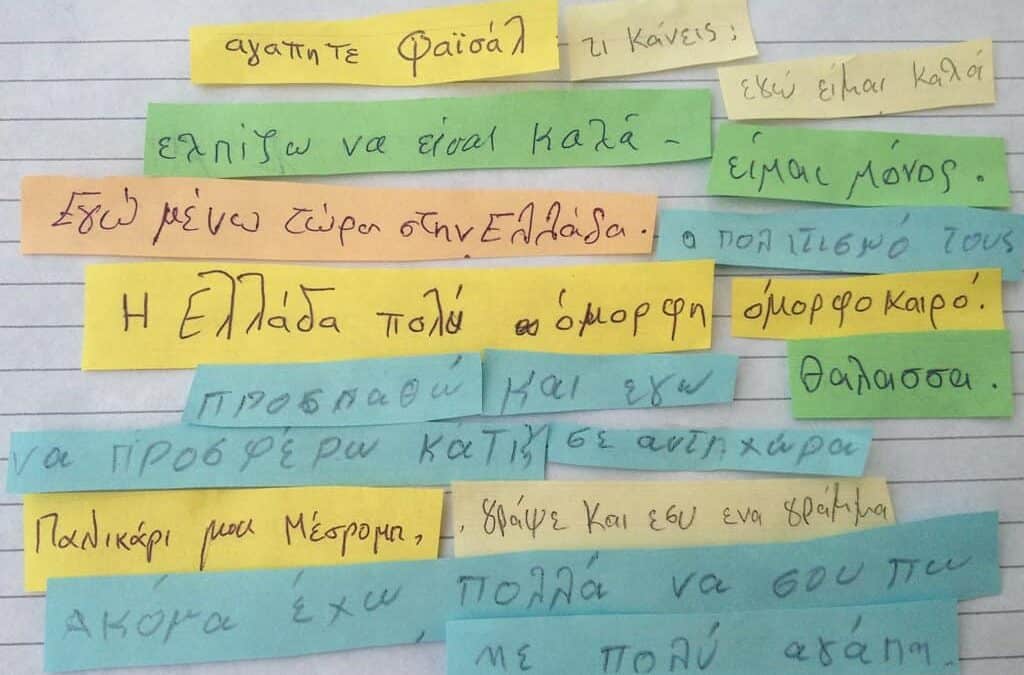 αγαπητε Φαϊσάλ τι κάνεις;
εγώ είμαι καλά
ελπίζω να είσαι καλά - είμαι μόνος.
Εγώ μένω τώρα στην Ελλάδα. ο πολιτισμό τους
Η Ελλάδα πολύ όμορφη όμορφο καιρό.
θάλασσα.
προσπαθώ και εγω
να προσφέρω κάτι σε αυτη χώρα
Παλικάρι μου, γράψε και εσυ ενα γράμμα
Ακόμα έχω πολλά να σου πω
με πολύ αγάπη.